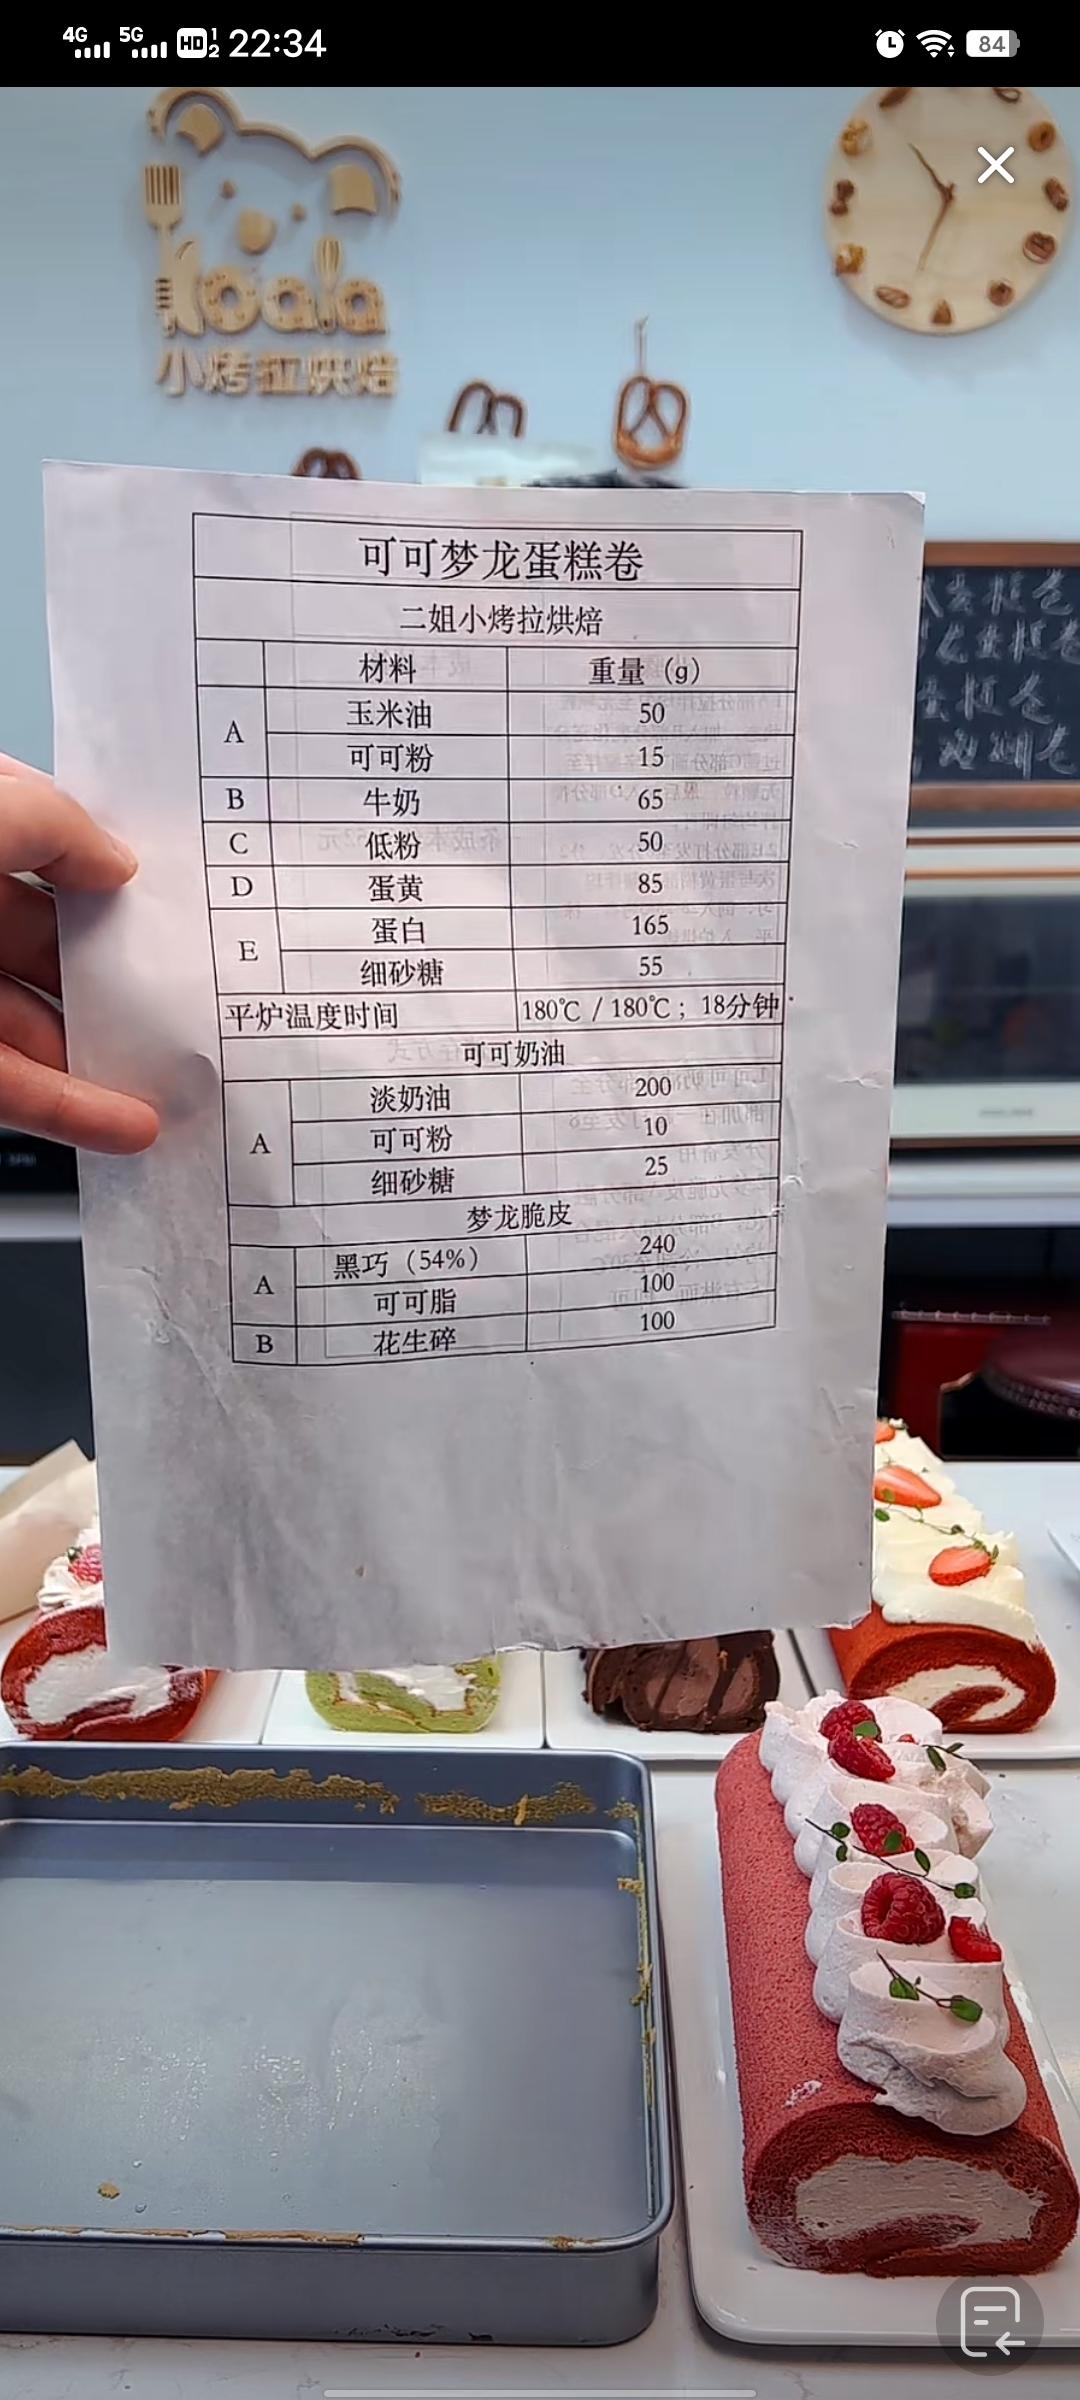 4G 5G HD 1 2 22:34 84
koala
小烤拉烘焙
可可梦龙蛋糕卷
二姐小烤拉烘焙
材料 重量（g）
A 玉米油 50
可可粉 15
B 牛奶 65
C 低粉 50
D 蛋黄 85
E 蛋白 165
细砂糖 55
平炉温度时间 180℃ / 180℃；18分钟
可可奶油
A 淡奶油 200
可可粉 10
细砂糖 25
梦龙脆皮
A 黑巧（54%） 240
可可脂 100
B 花生碎 100
蛋糕卷
龙蛋糕卷
蛋糕卷